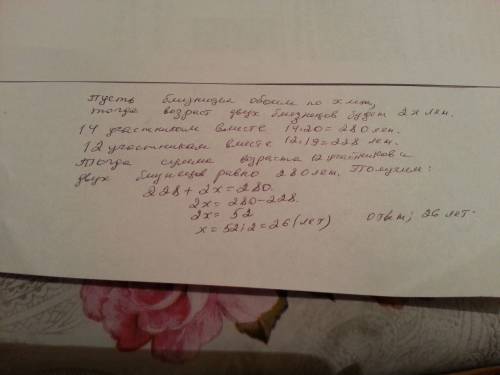 Пусть близнецам обоим по x лет,
тогда возраст двух близнецов будет 2x лет.
14 участникам вместе 14·20=280 лет.
12 участникам вместе 12·19=228 лет.
Тогда сумма возраста 12 участников и
двух близнецов равно 280 лет. Получим:
228+2x=280.
2x=280-228.
2x=52
x=52:2=26(лет) Ответ: 26 лет.